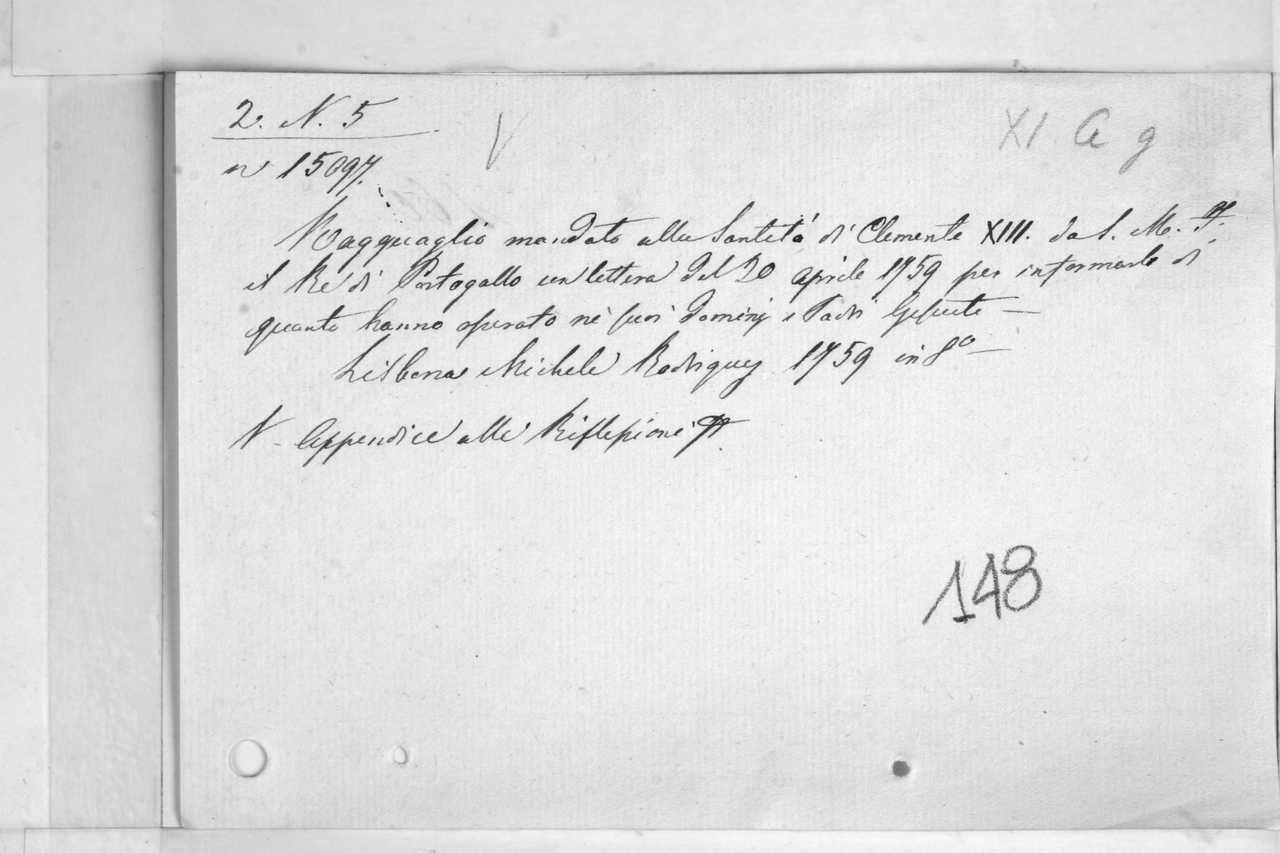 2. N. 5
V
XI a g
n 15097.
Ragguaglio mandato alla Santità di Clemente XIII. da S. M. F.
il Re di Portogallo con lettera del 20 aprile 1759 per informarlo di
quanto hanno operato ne' suoi Dominj i Padri Gesuiti —
Lisbona Michele Rodriguez 1759 in 8º —
N - Appendice alle Riflessioni
148